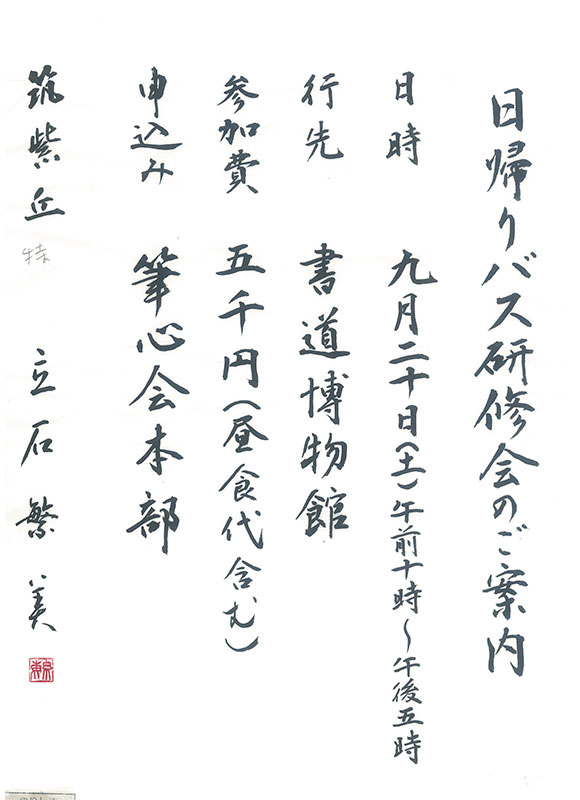 日帰りバス研修会のご案内
日時 九月二十日(土)午前十時~午後五時
行先 書道博物館
参加費 五千円(昼食代含む)
申込み 筆心会本部
筑紫丘 特 立石繁美